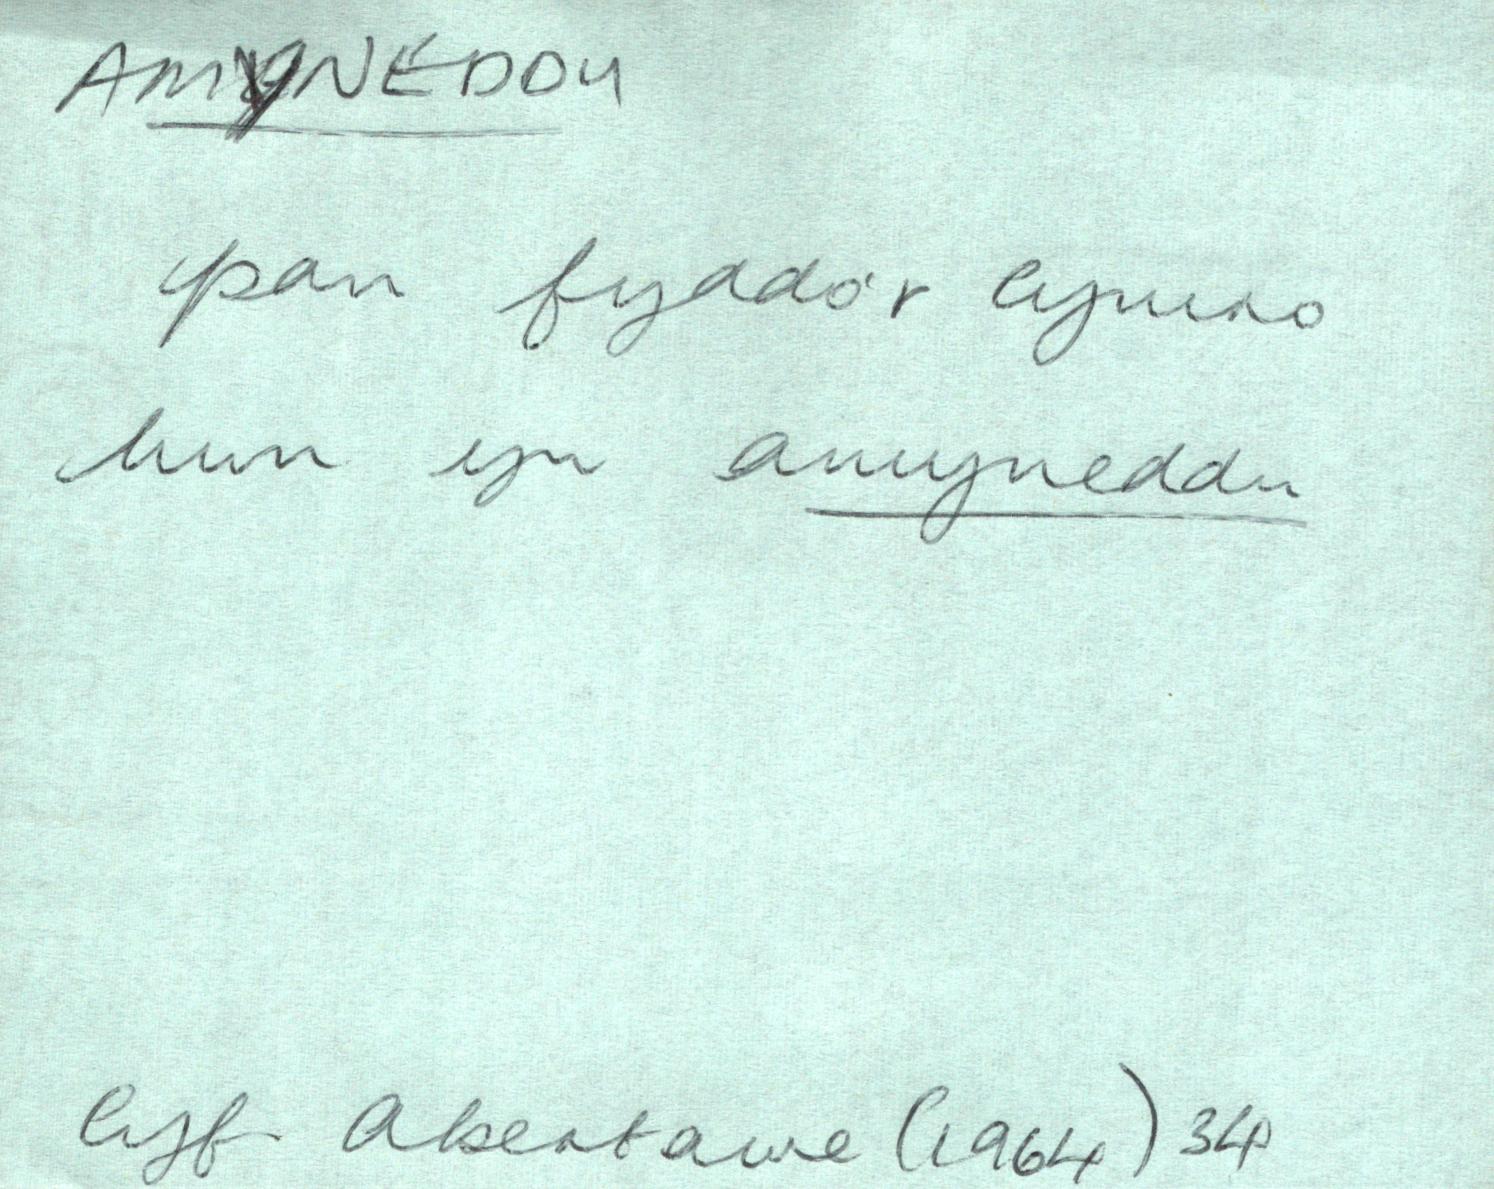 AMYNEDDU
pan fyddo'r Cymro
hwn yn amyneddu
Cyf Abertawe (1964) 34